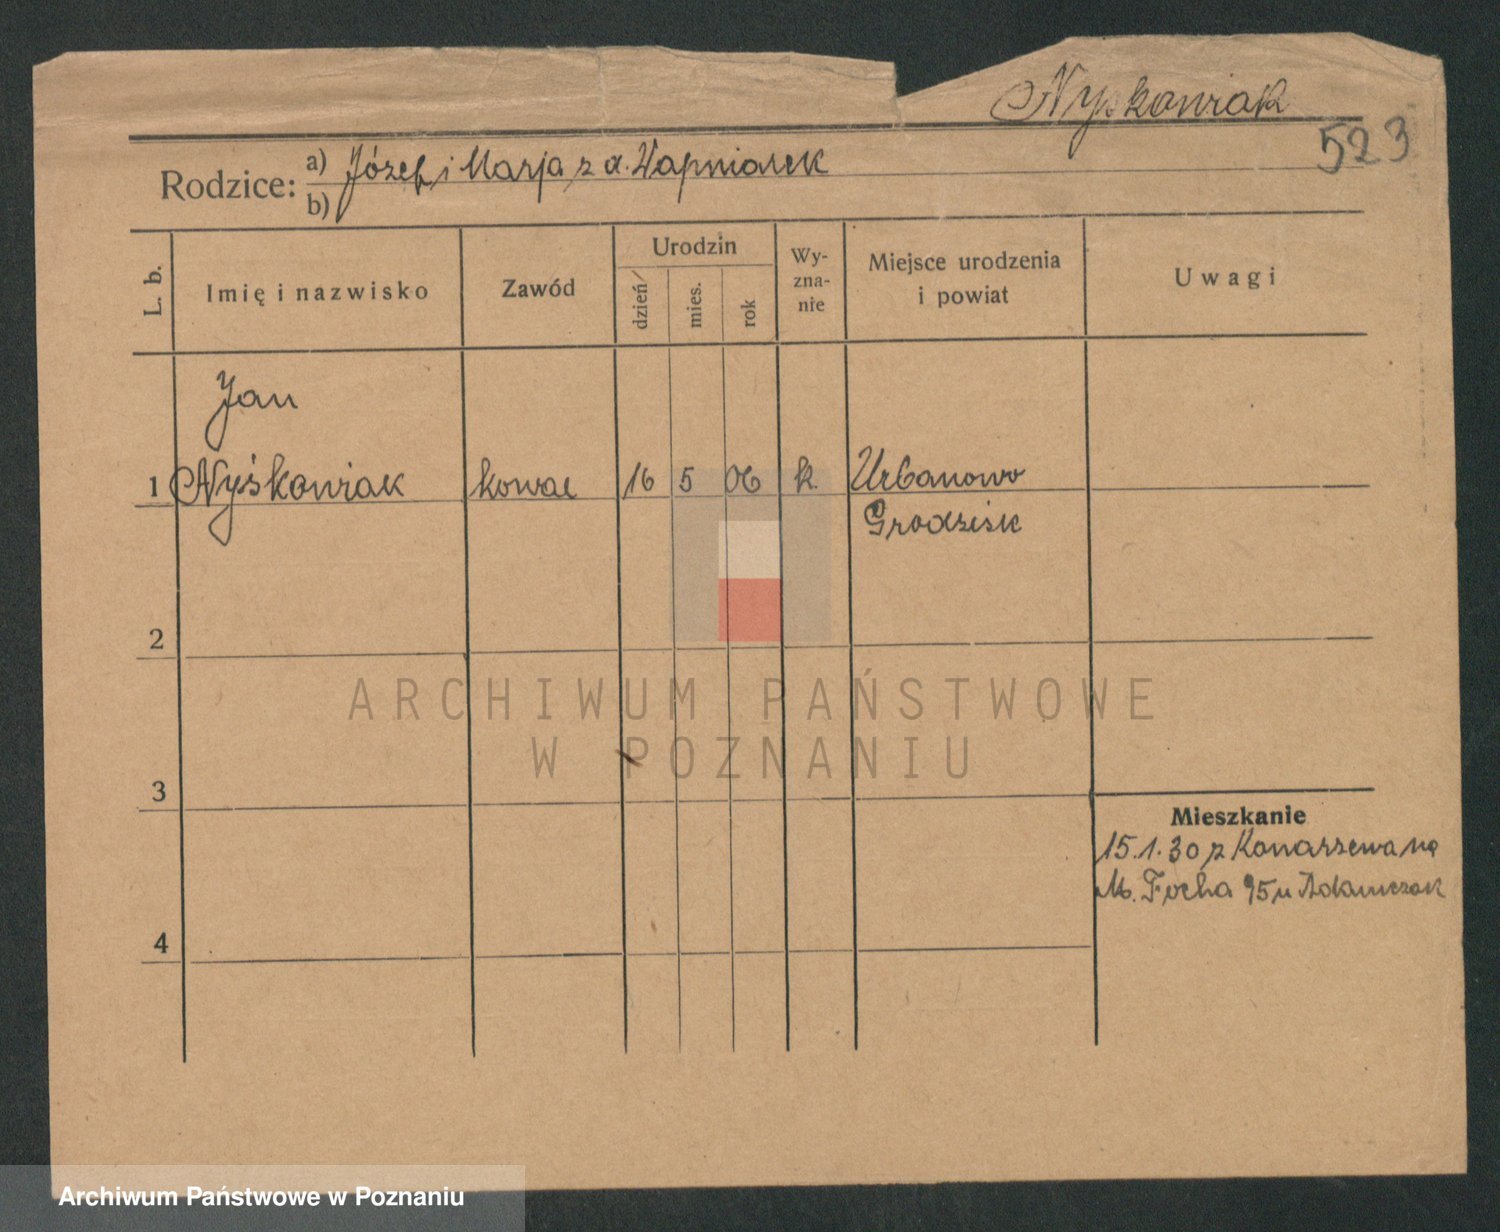 Nyskowiak
523
Rodzice: a) Józef i Marja z d. Wapniarek
b)
L. b.
Imię i nazwisko
Zawód
Urodzin
dzień
mies.
rok
Wy-
zna-
nie
Miejsce urodzenia
i powiat
Uwagi
Jan
1 Nyśkowiak kowal 16 5 06 k. Urbanowo
Grodzisk
2
3
4
Mieszkanie
15.1.30 z Konarzewa na
M. Focha 95 u Adamczak
ARCHIWUM PAŃSTWOWE
W POZNANIU
Archiwum Państwowe w Poznaniu